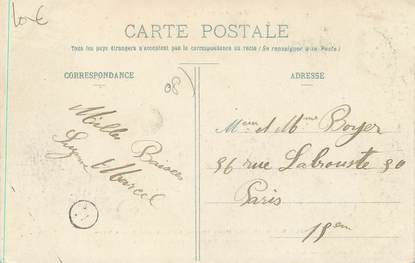 10€
CARTE POSTALE
Tous les pays étrangers n'acceptent pas la correspondance au recto (Se renseigner à la Poste)
CORRESPONDANCE
ADRESSE
08
Milles Baisers
Suzanne & Marcel
Mr & Mme Boyer
36 rue Labrouste 30
Paris
15em